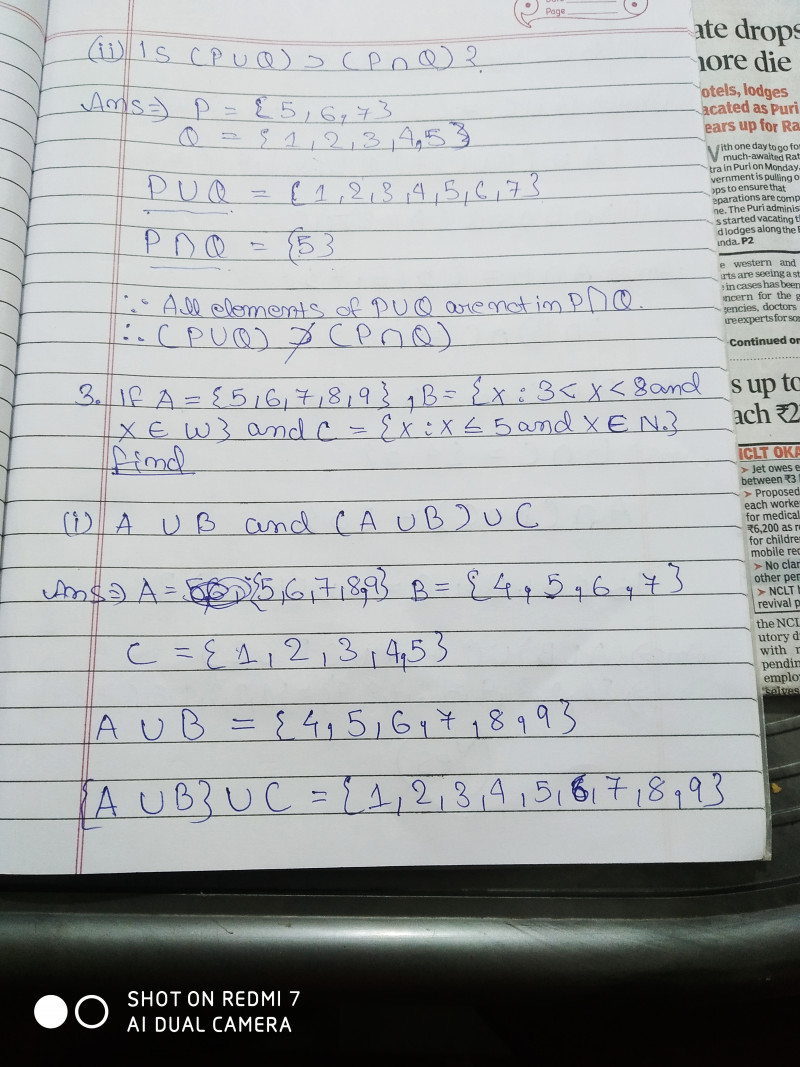 Page
(ii) Is (P∪Q) ⊃ (P∩Q)?
Ans⇒ P = {5,6,7}
Q = {1,2,3,4,5}
P∪Q = {1,2,3,4,5,6,7}
P∩Q = {5}
∵ All elements of P∪Q are not in P∩Q.
∴ (P∪Q) ⊅ (P∩Q)
3. If A = {5,6,7,8,9}, B = {x : 3 < x < 8 and
x ∈ W} and C = {x : x ≤ 5 and x ∈ N.}
find
(i) A ∪ B and (A ∪ B) ∪ C
Ans⇒ A = {5,6,7,8,9} B = {4,5,6,7}
C = {1,2,3,4,5}
A ∪ B = {4,5,6,7,8,9}
{A ∪ B} ∪ C = {1,2,3,4,5,6,7,8,9}
ate drops
ore die
otels, lodges
acated as Puri
ears up for Ra
ith one day to go fo
much-awaited Rat
tra in Puri on Monday,
vernment is pulling o
ps to ensure that
eparations are comp
ne. The Puri adminis
s started vacating t
d lodges along the
nda. P2
e western and
rts are seeing a st
in cases has been
ncern for the g
gencies, doctors
are experts for so
Continued on
s up to
ach ₹2
ICLT OKA
➤ Jet owes e
between ₹3
➤ Proposed
each worke
for medical
₹6,200 as r
for childre
mobile rec
➤ No clar
other per
➤ NCLT
revival p
the NCL
utory d
with r
pendin
emplo
selves
SHOT ON REDMI 7
AI DUAL CAMERA